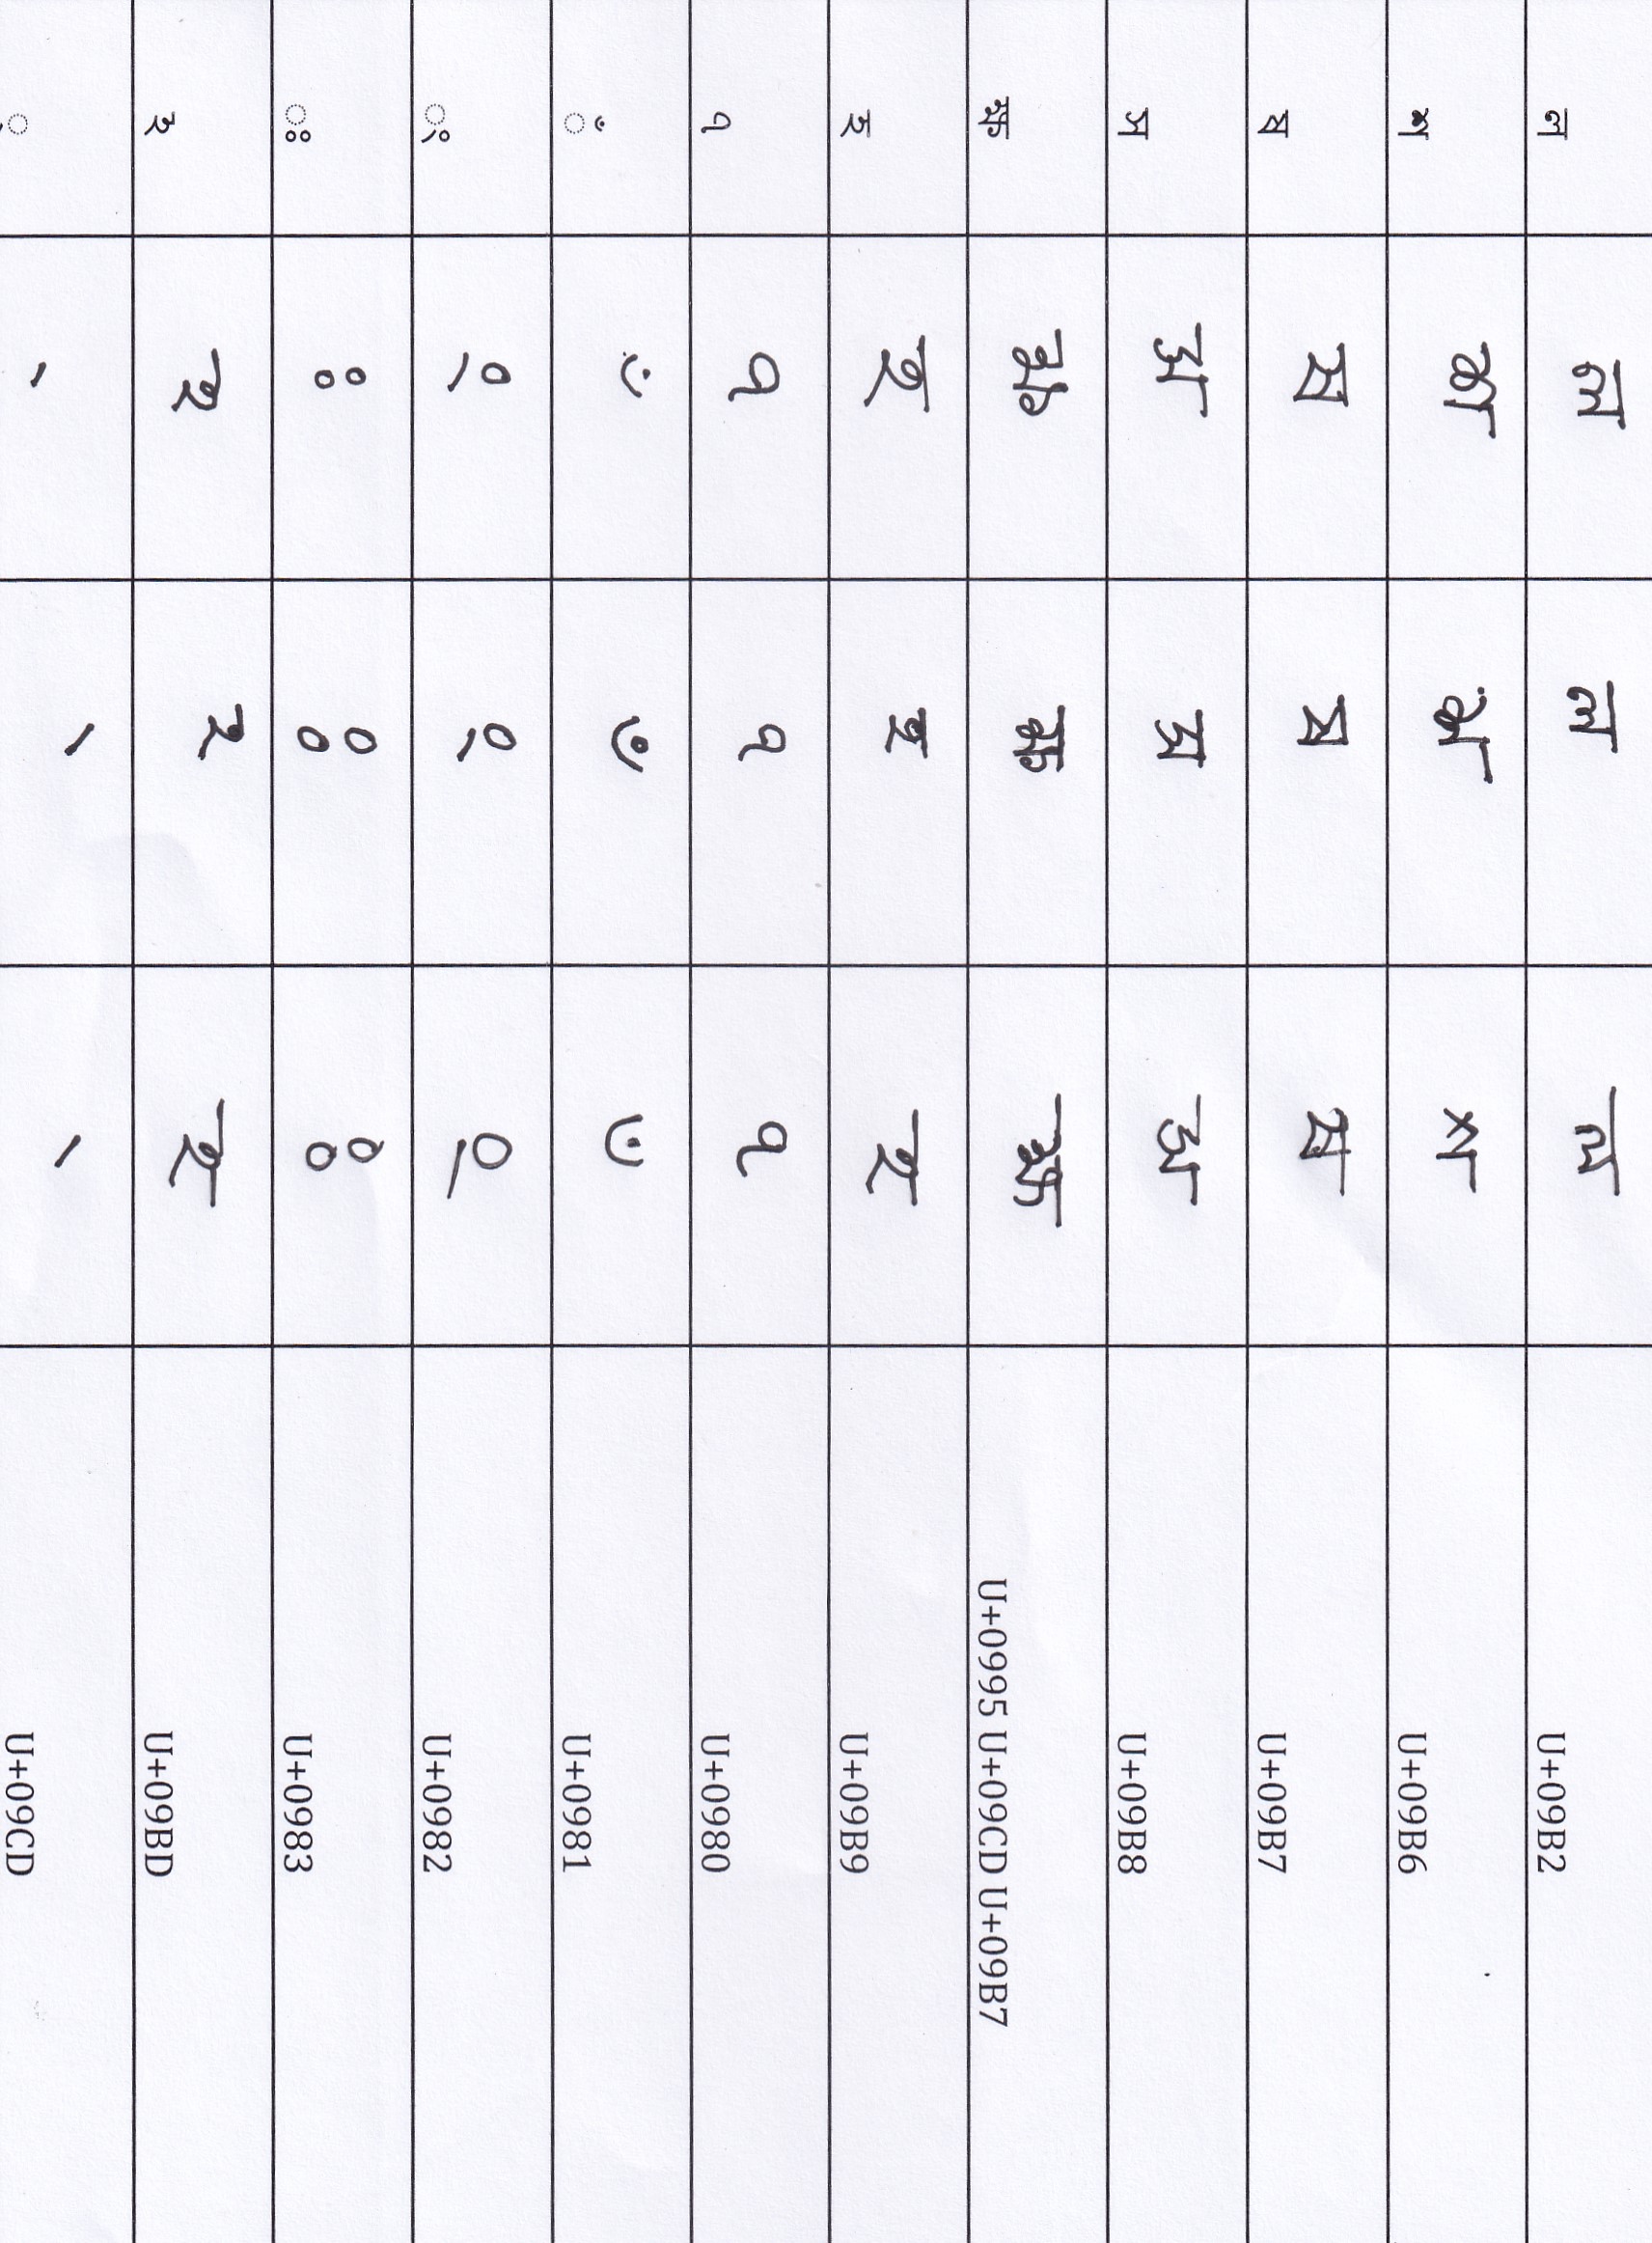 ল ল ল ল U+09B2
শ শ শ শ U+09B6
ষ ষ ষ ষ U+09B7
স স স স U+09B8
ক্ষ ক্ষ ক্ষ ক্ষ U+0995 U+09CD U+09B7
হ হ হ হ U+09B9
ঀ ঀ ঀ ঀ U+0980
ঁ ঁ ঁ ঁ U+0981
ং ং ং ং U+0982
ঃ ঃ ঃ ঃ U+0983
ঽ ঽ ঽ ঽ U+09BD
্ ্ ্ ্ U+09CD